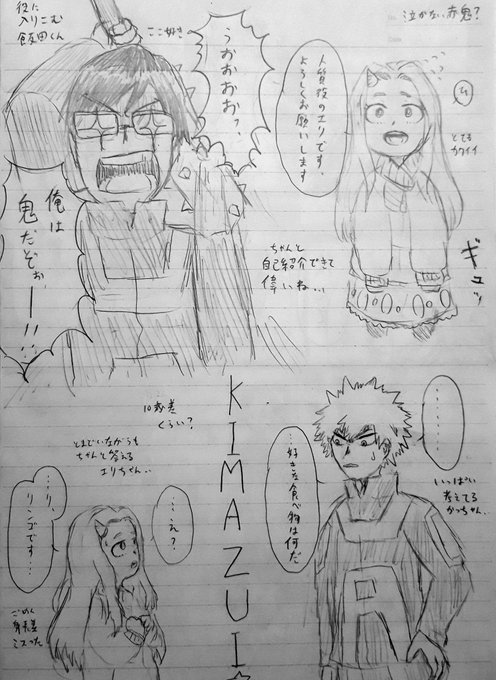 役に
入りこむ
飯田くん
ここ好き
うおおおお?、
俺は
鬼だぞぉ、
ー!!!
泣かない赤鬼?
人質役のエリです。
よろしくお願いします
とても
カワイイ
ギュッ
ちゃんと
自己紹介できて
偉いね…
K
I
M
A
Z
U
I
☆
………
…好きな食べ物は何だ
いっぱい
考えてる
かっちゃん。
10歳差
くらい?
とまどいながらも
ちゃんと答える
エリちゃん…
…え?
…り、
リンゴです…
ごめん
身長差
ミスった